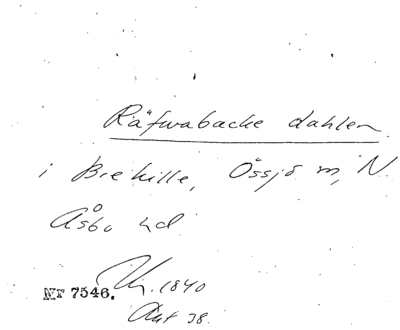 Räfwabacke dahlen
i Brehille, Össjö m, N
Åsbo hd
Nr 7546.
1840
Akt 38.